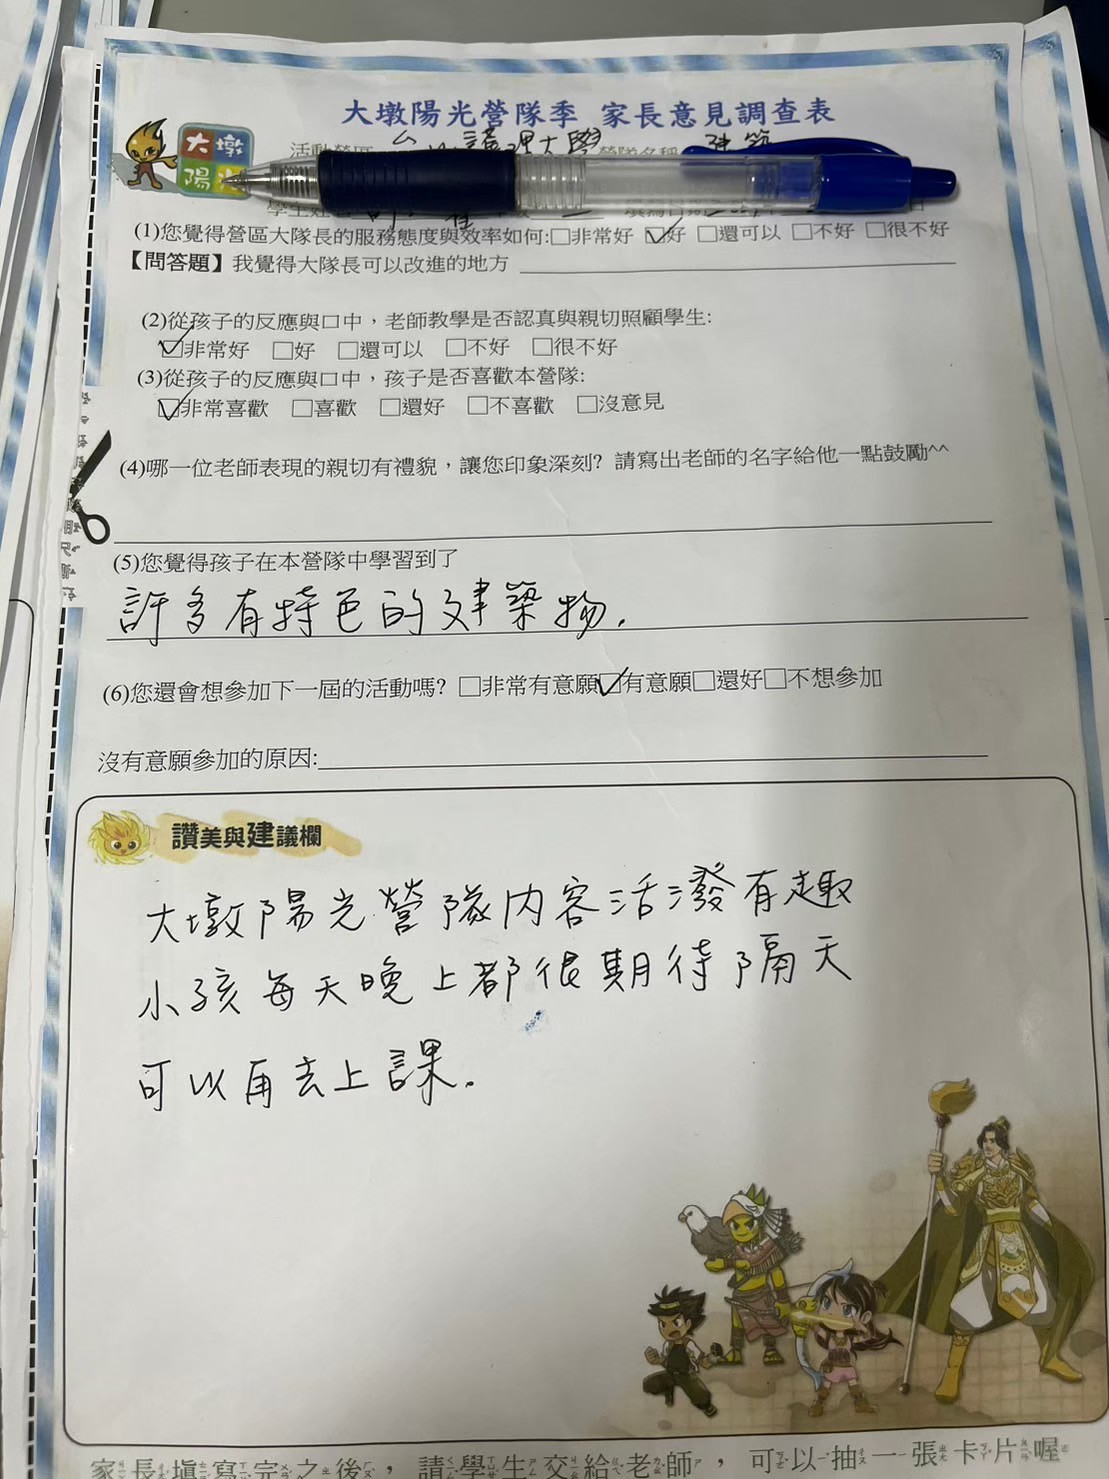 大墩陽光營隊季 家長意見調查表
大墩
陽
護理大學
(1)您覺得營區大隊長的服務態度與效率如何:□非常好 ☑好 □還可以 □不好 □很不好
【問答題】我覺得大隊長可以改進的地方
(2)從孩子的反應與口中，老師教學是否認真與親切照顧學生:
☑非常好 □好 □還可以 □不好 □很不好
(3)從孩子的反應與口中，孩子是否喜歡本營隊:
☑非常喜歡 □喜歡 □還好 □不喜歡 □沒意見
(4)哪一位老師表現的親切有禮貌，讓您印象深刻? 請寫出老師的名字給他一點鼓勵^^
(5)您覺得孩子在本營隊中學習到了
許多有特色的建築物.
(6)您還會想參加下一屆的活動嗎? □非常有意願☑有意願□還好□不想參加
沒有意願參加的原因:
讚美與建議欄
大墩陽光營隊內容活潑有趣
小孩每天晚上都很期待隔天
可以再去上課.
家長填寫完之後，請學生交給老師，可以抽一張卡片喔